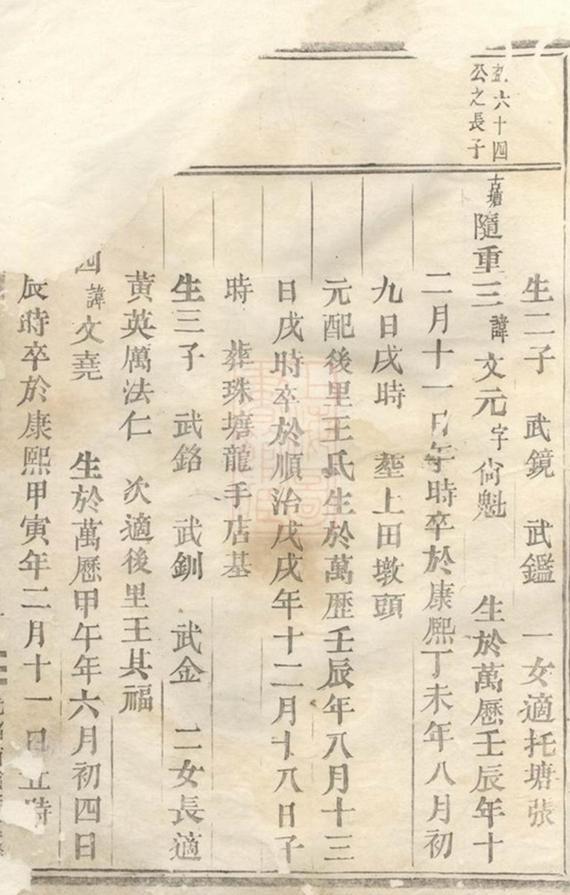 生二子 武鏡 武鑑 一女適托塘張
六十四
公之長子
隨重三諱文元字尙魁 生於萬曆壬辰年十
二月十一日午時卒於康熙丁未年八月初
九日戌時 塟上田墩頭
元配後里王氏生於萬歷壬辰年八月十三
日戌時卒於順治戊戌年十二月十八日子
時 葬珠塘龍手店基
生三子 武銘 武釧 武金 二女長適
黃英厲法仁 次適後里王其福
四諱文堯 生於萬曆甲午年六月初四日
辰時卒於康熙甲寅年二月十一日丑時